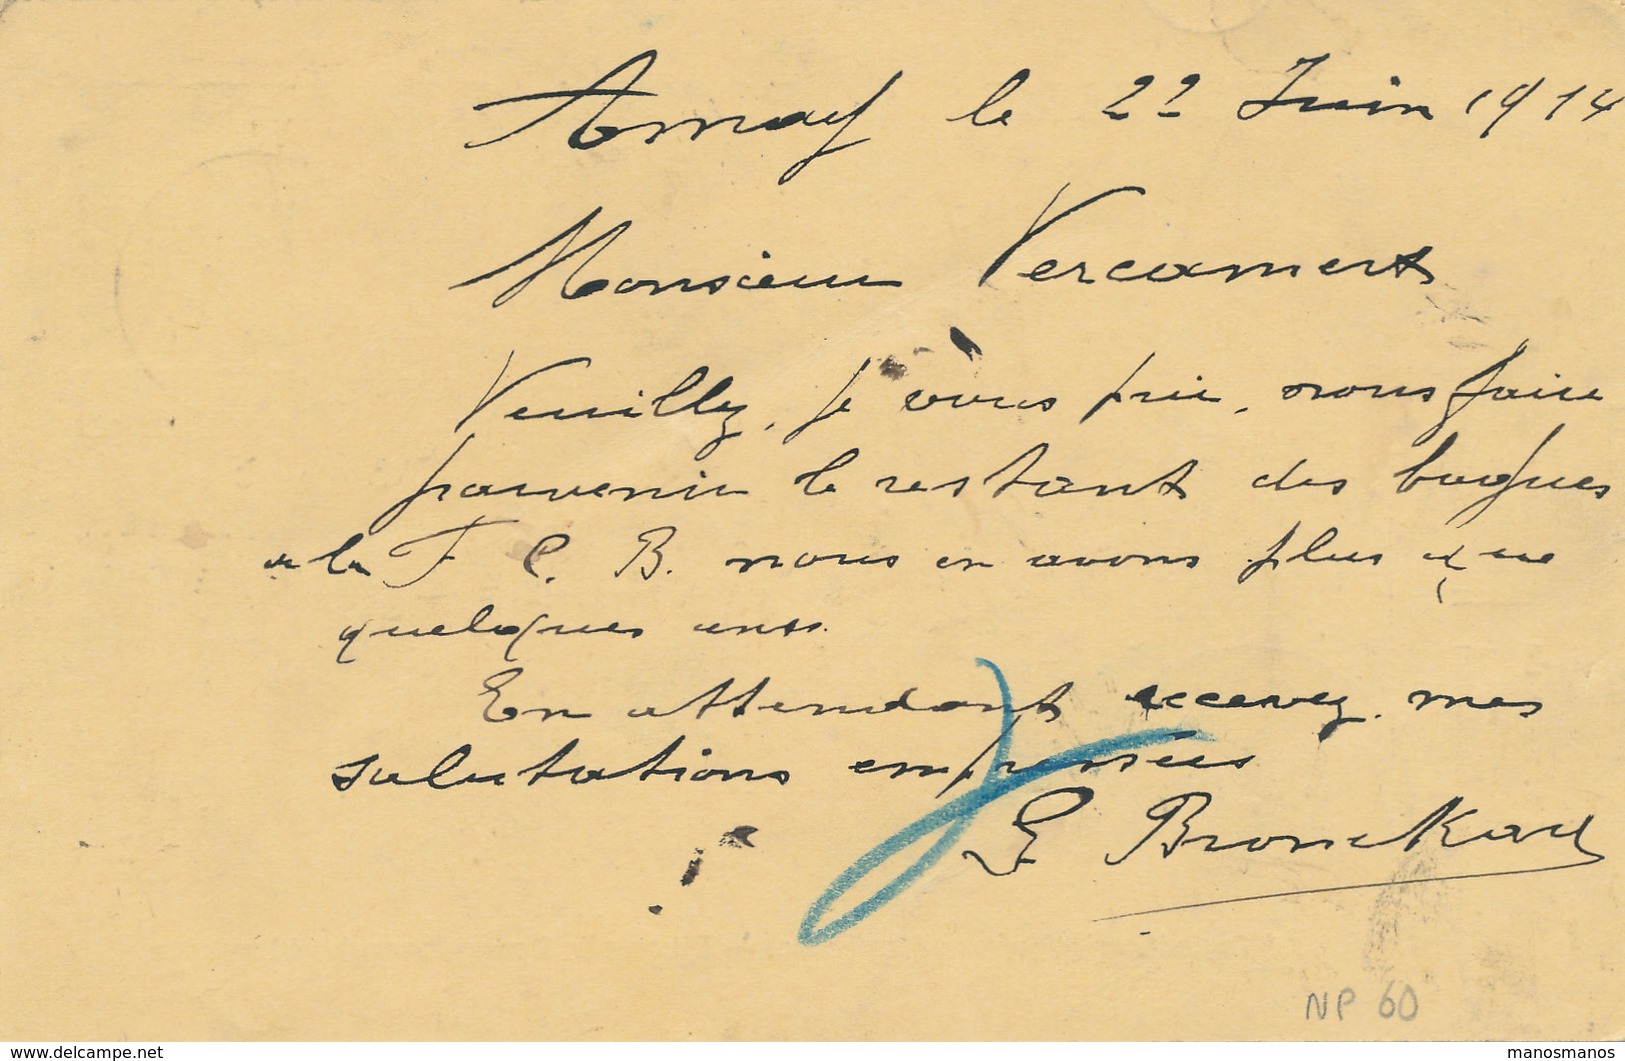 Amay le 22 Juin 1914
Monsieur Vercamert
Veuillez, je vous prie, nous faire
parvenir le restant des bagues
de la F C. B. nous en avons plus que
quelques unes.
En attendant recevez mes
salutations empressées
Bronckart
NP 60
www.delcampe.net
manosmanos